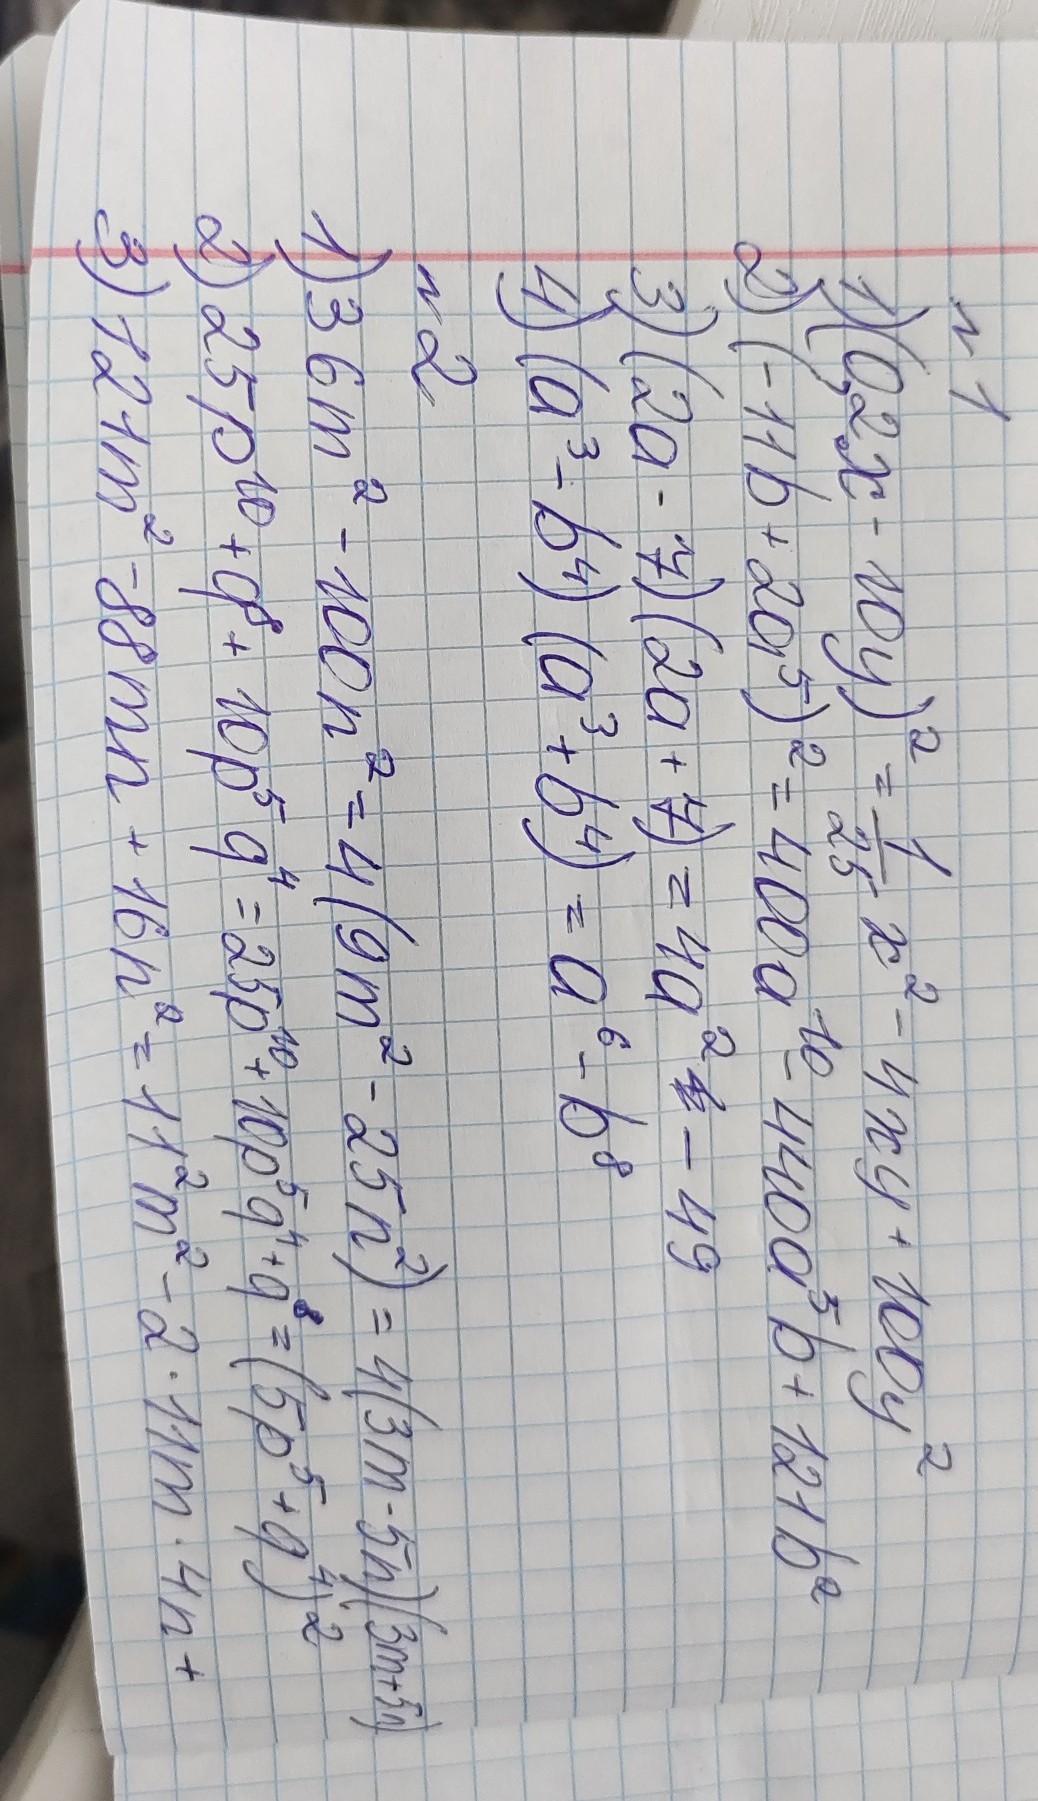 n 1
1) (0,2x - 10y)² = 1/25 x² - 4xy + 100y²
2) (-11b + 20a⁵)² = 400a¹⁰ - 440a⁵b + 121b²
3) (2a - 7) (2a + 7) = 4a² - 49
4) (a³ - b⁴) (a³ + b⁴) = a⁶ - b⁸
n 2
1) 36m² - 100n² = 4(9m² - 25n²) = 4(3m - 5n)(3m+5n)
2) 25p¹⁰ + q⁸ + 10p⁵q⁴ = 25p¹⁰ + 10p⁵q⁴ + q⁸ = (5p⁵ + q⁴)²
3) 121m² - 88mn + 16n² = 11²m² - 2 · 11m · 4n +